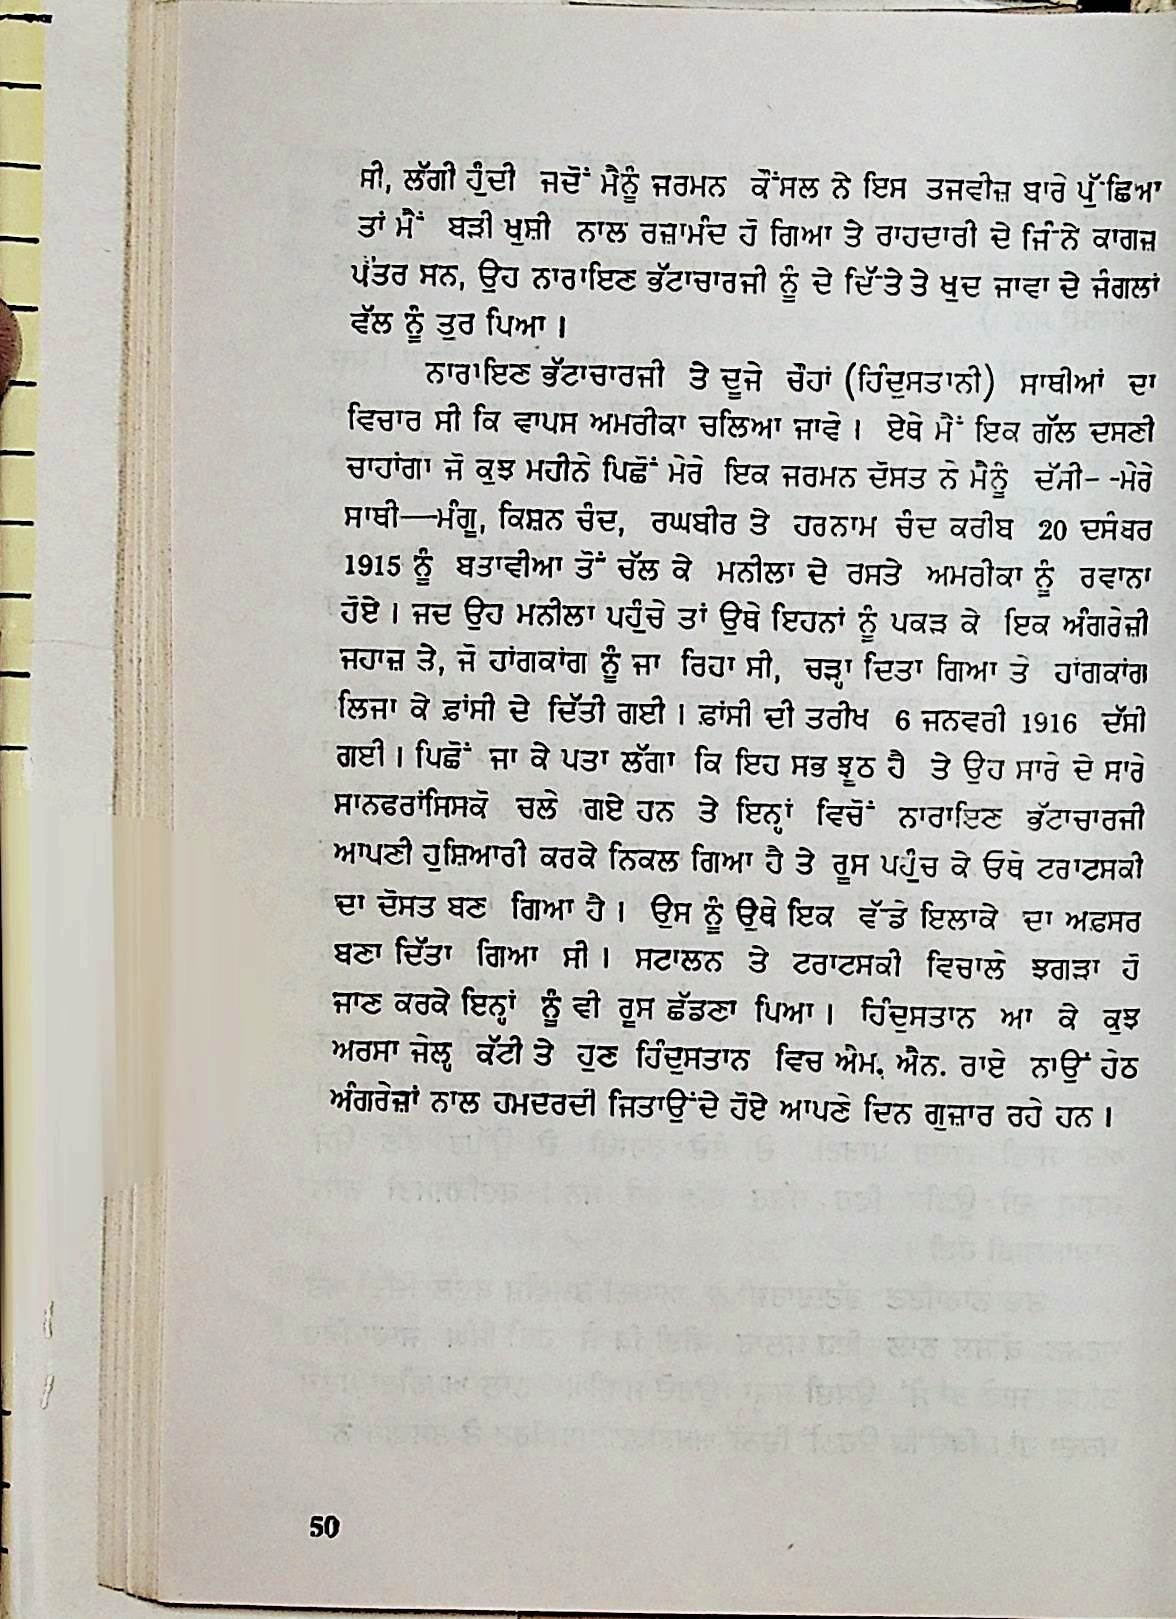 ਸੀ, ਲੱਗੀ ਹੁੰਦੀ ਜਦੋਂ ਮੈਨੂੰ ਜਰਮਨ ਕੌਂਸਲ ਨੇ ਇਸ ਤਜਵੀਜ਼ ਬਾਰੇ ਪੁੱਛਿਆ
ਤਾਂ ਮੈਂ ਬੜੀ ਖੁਸ਼ੀ ਨਾਲ ਰਜ਼ਾਮੰਦ ਹੋ ਗਿਆ ਤੇ ਰਾਹਦਾਰੀ ਦੇ ਜਿੰਨੇ ਕਾਗਜ਼
ਪੱਤਰ ਸਨ, ਉਹ ਨਾਰਾਇਣ ਭੱਟਾਚਾਰਜੀ ਨੂੰ ਦੇ ਦਿੱਤੇ ਤੇ ਖੁਦ ਜਾਵਾ ਦੇ ਜੰਗਲਾਂ
ਵੱਲ ਨੂੰ ਤੁਰ ਪਿਆ ।
ਨਾਰਾਇਣ ਭੱਟਾਚਾਰਜੀ ਤੇ ਦੂਜੇ ਚੌਹਾਂ (ਹਿੰਦੁਸਤਾਨੀ) ਸਾਥੀਆਂ ਦਾ
ਵਿਚਾਰ ਸੀ ਕਿ ਵਾਪਸ ਅਮਰੀਕਾ ਚਲਿਆ ਜਾਵੇ । ਏਥੇ ਮੈਂ ਇਕ ਗੱਲ ਦਸਣੀ
ਚਾਹਾਂਗਾ ਜੋ ਕੁਝ ਮਹੀਨੇ ਪਿਛੋਂ ਮੇਰੇ ਇਕ ਜਰਮਨ ਦੋਸਤ ਨੇ ਮੈਨੂੰ ਦੱਸੀ- -ਮੇਰੇ
ਸਾਥੀ—ਮੰਗੂ, ਕਿਸ਼ਨ ਚੰਦ, ਰਘਬੀਰ ਤੇ ਹਰਨਾਮ ਚੰਦ ਕਰੀਬ 20 ਦਸੰਬਰ
1915 ਨੂੰ ਬਤਾਵੀਆ ਤੋਂ ਚੱਲ ਕੇ ਮਨੀਲਾ ਦੇ ਰਸਤੇ ਅਮਰੀਕਾ ਨੂੰ ਰਵਾਨਾ
ਹੋਏ । ਜਦ ਉਹ ਮਨੀਲਾ ਪਹੁੰਚੇ ਤਾਂ ਉਥੇ ਇਹਨਾਂ ਨੂੰ ਪਕੜ ਕੇ ਇਕ ਅੰਗਰੇਜ਼ੀ
ਜਹਾਜ਼ ਤੇ, ਜੋ ਹਾਂਗਕਾਂਗ ਨੂੰ ਜਾ ਰਿਹਾ ਸੀ, ਚੜ੍ਹਾ ਦਿਤਾ ਗਿਆ ਤੇ ਹਾਂਗਕਾਂਗ
ਲਿਜਾ ਕੇ ਫ਼ਾਂਸੀ ਦੇ ਦਿੱਤੀ ਗਈ । ਫ਼ਾਂਸੀ ਦੀ ਤਰੀਖ 6 ਜਨਵਰੀ 1916 ਦੱਸੀ
ਗਈ । ਪਿਛੋਂ ਜਾ ਕੇ ਪਤਾ ਲੱਗਾ ਕਿ ਇਹ ਸਭ ਝੂਠ ਹੈ ਤੇ ਉਹ ਸਾਰੇ ਦੇ ਸਾਰੇ
ਸਾਨਫਰਾਂਸਿਸਕੋ ਚਲੇ ਗਏ ਹਨ ਤੇ ਇਨ੍ਹਾਂ ਵਿਚੋਂ ਨਾਰਾਇਣ ਭੱਟਾਚਾਰਜੀ
ਆਪਣੀ ਹੁਸ਼ਿਆਰੀ ਕਰਕੇ ਨਿਕਲ ਗਿਆ ਹੈ ਤੇ ਰੂਸ ਪਹੁੰਚ ਕੇ ਓਥੇ ਟਰਾਟਸਕੀ
ਦਾ ਦੋਸਤ ਬਣ ਗਿਆ ਹੈ । ਉਸ ਨੂੰ ਉਥੇ ਇਕ ਵੱਡੇ ਇਲਾਕੇ ਦਾ ਅਫ਼ਸਰ
ਬਣਾ ਦਿੱਤਾ ਗਿਆ ਸੀ । ਸਟਾਲਨ ਤੇ ਟਰਾਟਸਕੀ ਵਿਚਾਲੇ ਝਗੜਾ ਹੋ
ਜਾਣ ਕਰਕੇ ਇਨ੍ਹਾਂ ਨੂੰ ਵੀ ਰੂਸ ਛੱਡਣਾ ਪਿਆ । ਹਿੰਦੁਸਤਾਨ ਆ ਕੇ ਕੁਝ
ਅਰਸਾ ਜੇਲ੍ਹ ਕੱਟੀ ਤੇ ਹੁਣ ਹਿੰਦੁਸਤਾਨ ਵਿਚ ਐਮ. ਐਨ. ਰਾਏ ਨਾਉਂ ਹੇਠ
ਅੰਗਰੇਜ਼ਾਂ ਨਾਲ ਹਮਦਰਦੀ ਜਿਤਾਉਂਦੇ ਹੋਏ ਆਪਣੇ ਦਿਨ ਗੁਜ਼ਾਰ ਰਹੇ ਹਨ ।
50